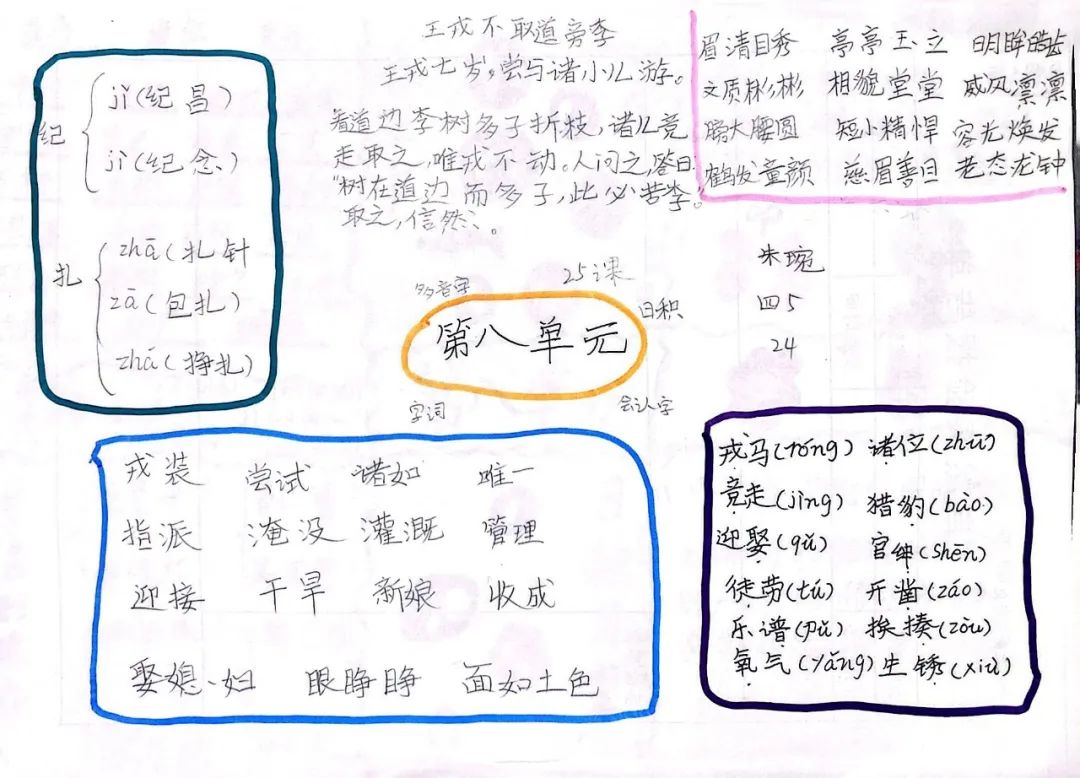 王戎不取道旁李
王戎七岁，尝与诸小儿游。
看道边李树多子折枝，诸儿竞
走取之，唯戎不动。人问之，答曰
“树在道边而多子，此必苦李。”
取之，信然。
纪
jǐ(纪昌)
jì(纪念)
扎
zhā(扎针
zā(包扎)
zhá(挣扎)
眉清目秀 亭亭玉立 明眸皓齿
文质彬彬 相貌堂堂 威风凛凛
膀大腰圆 短小精悍 容光焕发
鹤发童颜 慈眉善目 老态龙钟
朱琬
四5
24
多音字 25课 日积
第八单元
字词 会认字
戎装 尝试 诸如 唯一
指派 淹没 灌溉 管理
迎接 干旱 新娘 收成
娶媳妇 眼睁睁 面如土色
戎马(róng) 诸位(zhū)
竞走(jìng) 猎豹(bào)
迎娶(qǔ) 官绅(shēn)
徒劳(tú) 开凿(záo)
乐谱(pǔ) 挨揍(zòu)
氧气(yǎng) 生锈(xiù)